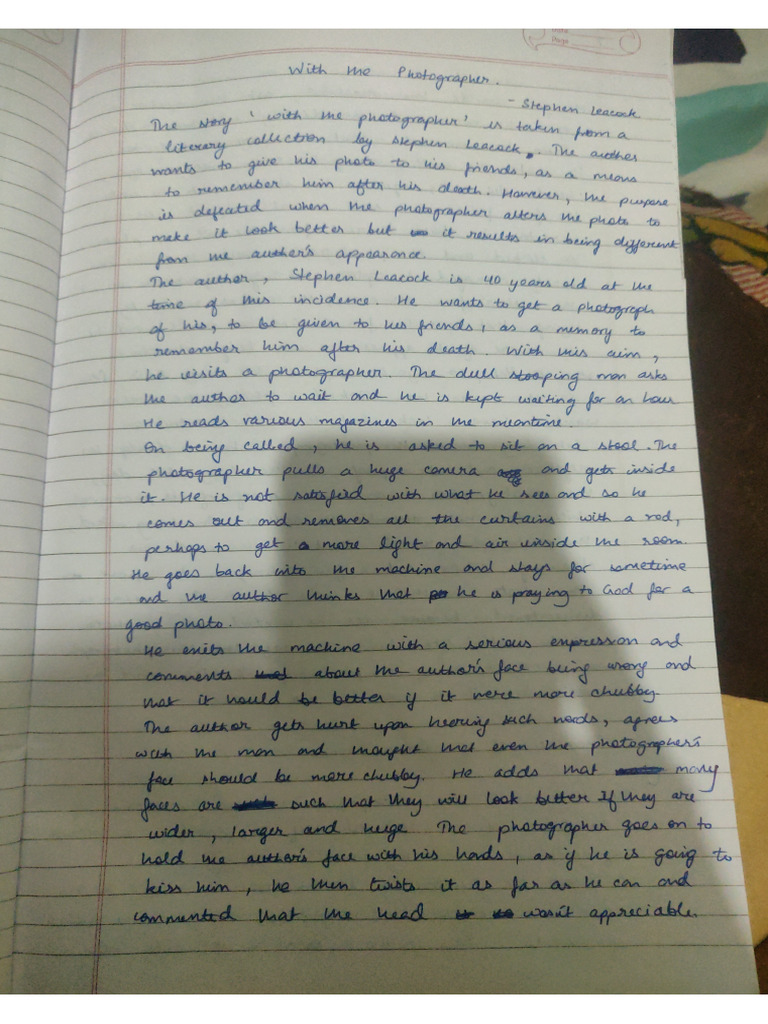 Date
Page
With the Photographer.
- Stephen Leacock.
The story 'with the photographer' is taken from a
literary collection by Stephen Leacock. The author
wants to give his photo to his friends, as a means
to remember him after his death. However, the purpose
is defeated when the photographer alters the photo to
make it look better but it results in being different
from the author's appearance.
The author, Stephen Leacock is 40 years old at the
time of this incidence. He wants to get a photograph
of his, to be given to his friends, as a memory to
remember him after his death. With this aim,
he visits a photographer. The dull stooping man asks
the author to wait and he is kept waiting for an hour
He reads various magazines in the meantime.
On being called, he is asked to sit on a stool. The
photographer pulls a huge camera and gets inside
it. He is not satisfied with what he sees and so he
comes out and removes all the curtains with a rod,
perhaps to get a more light and air inside the room.
He goes back into the machine and stays for sometime
and the author thinks that he is praying to God for a
good photo.
He exits the machine with a serious expression and
comments about the author's face being wrong and
that it would be better if it were more chubby.
The author gets hurt upon hearing such words, agrees
with the man and thought that even the photographer's
face should be more chubby. He adds that many
faces are such that they will look better if they are
wider, larger and huge The photographer goes on to
hold the author's face with his hands, as if he is going to
kiss him, he then twists it as far as he can and
commented that the head wasn't appreciable.